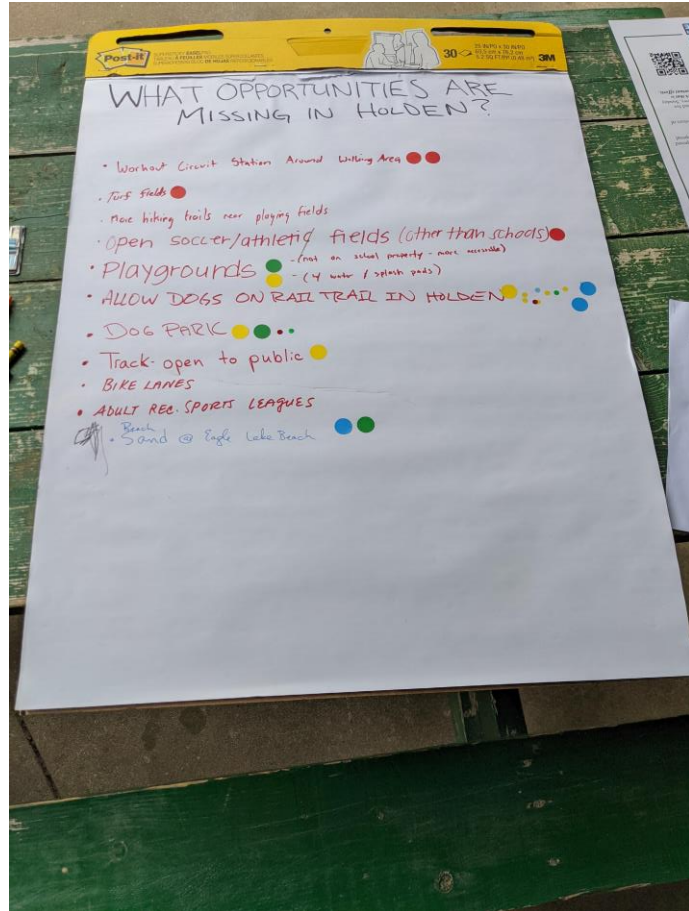 Post-it
30
25 IN PO x 30 IN PO
63,5 cm x 76,2 cm
3M
WHAT OPPORTUNITIES ARE
MISSING IN HOLDEN?
• Workout Circuit Station Around Walking Area
• Turf fields
• More hiking trails near playing fields
• Open soccer/athletic fields (other than schools)
• Playgrounds - (not on school property - more accessible)
- (4 water / splash pads)
• ALLOW DOGS ON RAIL TRAIL IN HOLDEN
• DOG PARK
• Track - open to public
• BIKE LANES
• ADULT REC. SPORTS LEAGUES
Beach
• Sand @ Eagle Lake Beach